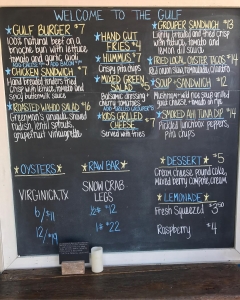 WELCOME TO THE GULF
GULF BURGER $7
100% natural beef on a
brioche bun with lettuce
tomato and garlic aioli
ADD CHEESE $1 ADD BACON
CHICKEN SANDWICH $7
Hand breaded tenders fried
Crisp with lettuce, tomato and
ROASTED WAHOO SALAD $16
radish, lentil sprouts,
grapefruit vinaigrette
HAND CUT
FRIES $4
HUMMUS $7
Crispy pita chips
MIXED GREEN
SALAD $5
Balsamic dressing
cherry tomatoes
KIDS GRILLED
CHEESE $7
Served with fries
GROUPER SANDWICH $13
Lightly breaded and fried Crisp
with lettuce, tomato and
lemon dill sauce
FRIED LOCAL OYSTER TACOS $14
SOUP & SANDWICH
SMOKED AHI TUNA DIP $14
Pickled jalapenos, peppers,
pita chips
OYSTERS
VIRGINICA TX
6/$11
12/$19
RAW BAR
SNOW CRAB
LEGS
½# $12
1# $22
DESSERT $5
Cream cheese pound cake,
mixed berry compote, cream
LEMONADE
Fresh Squeezed $3.50
Raspberry $4